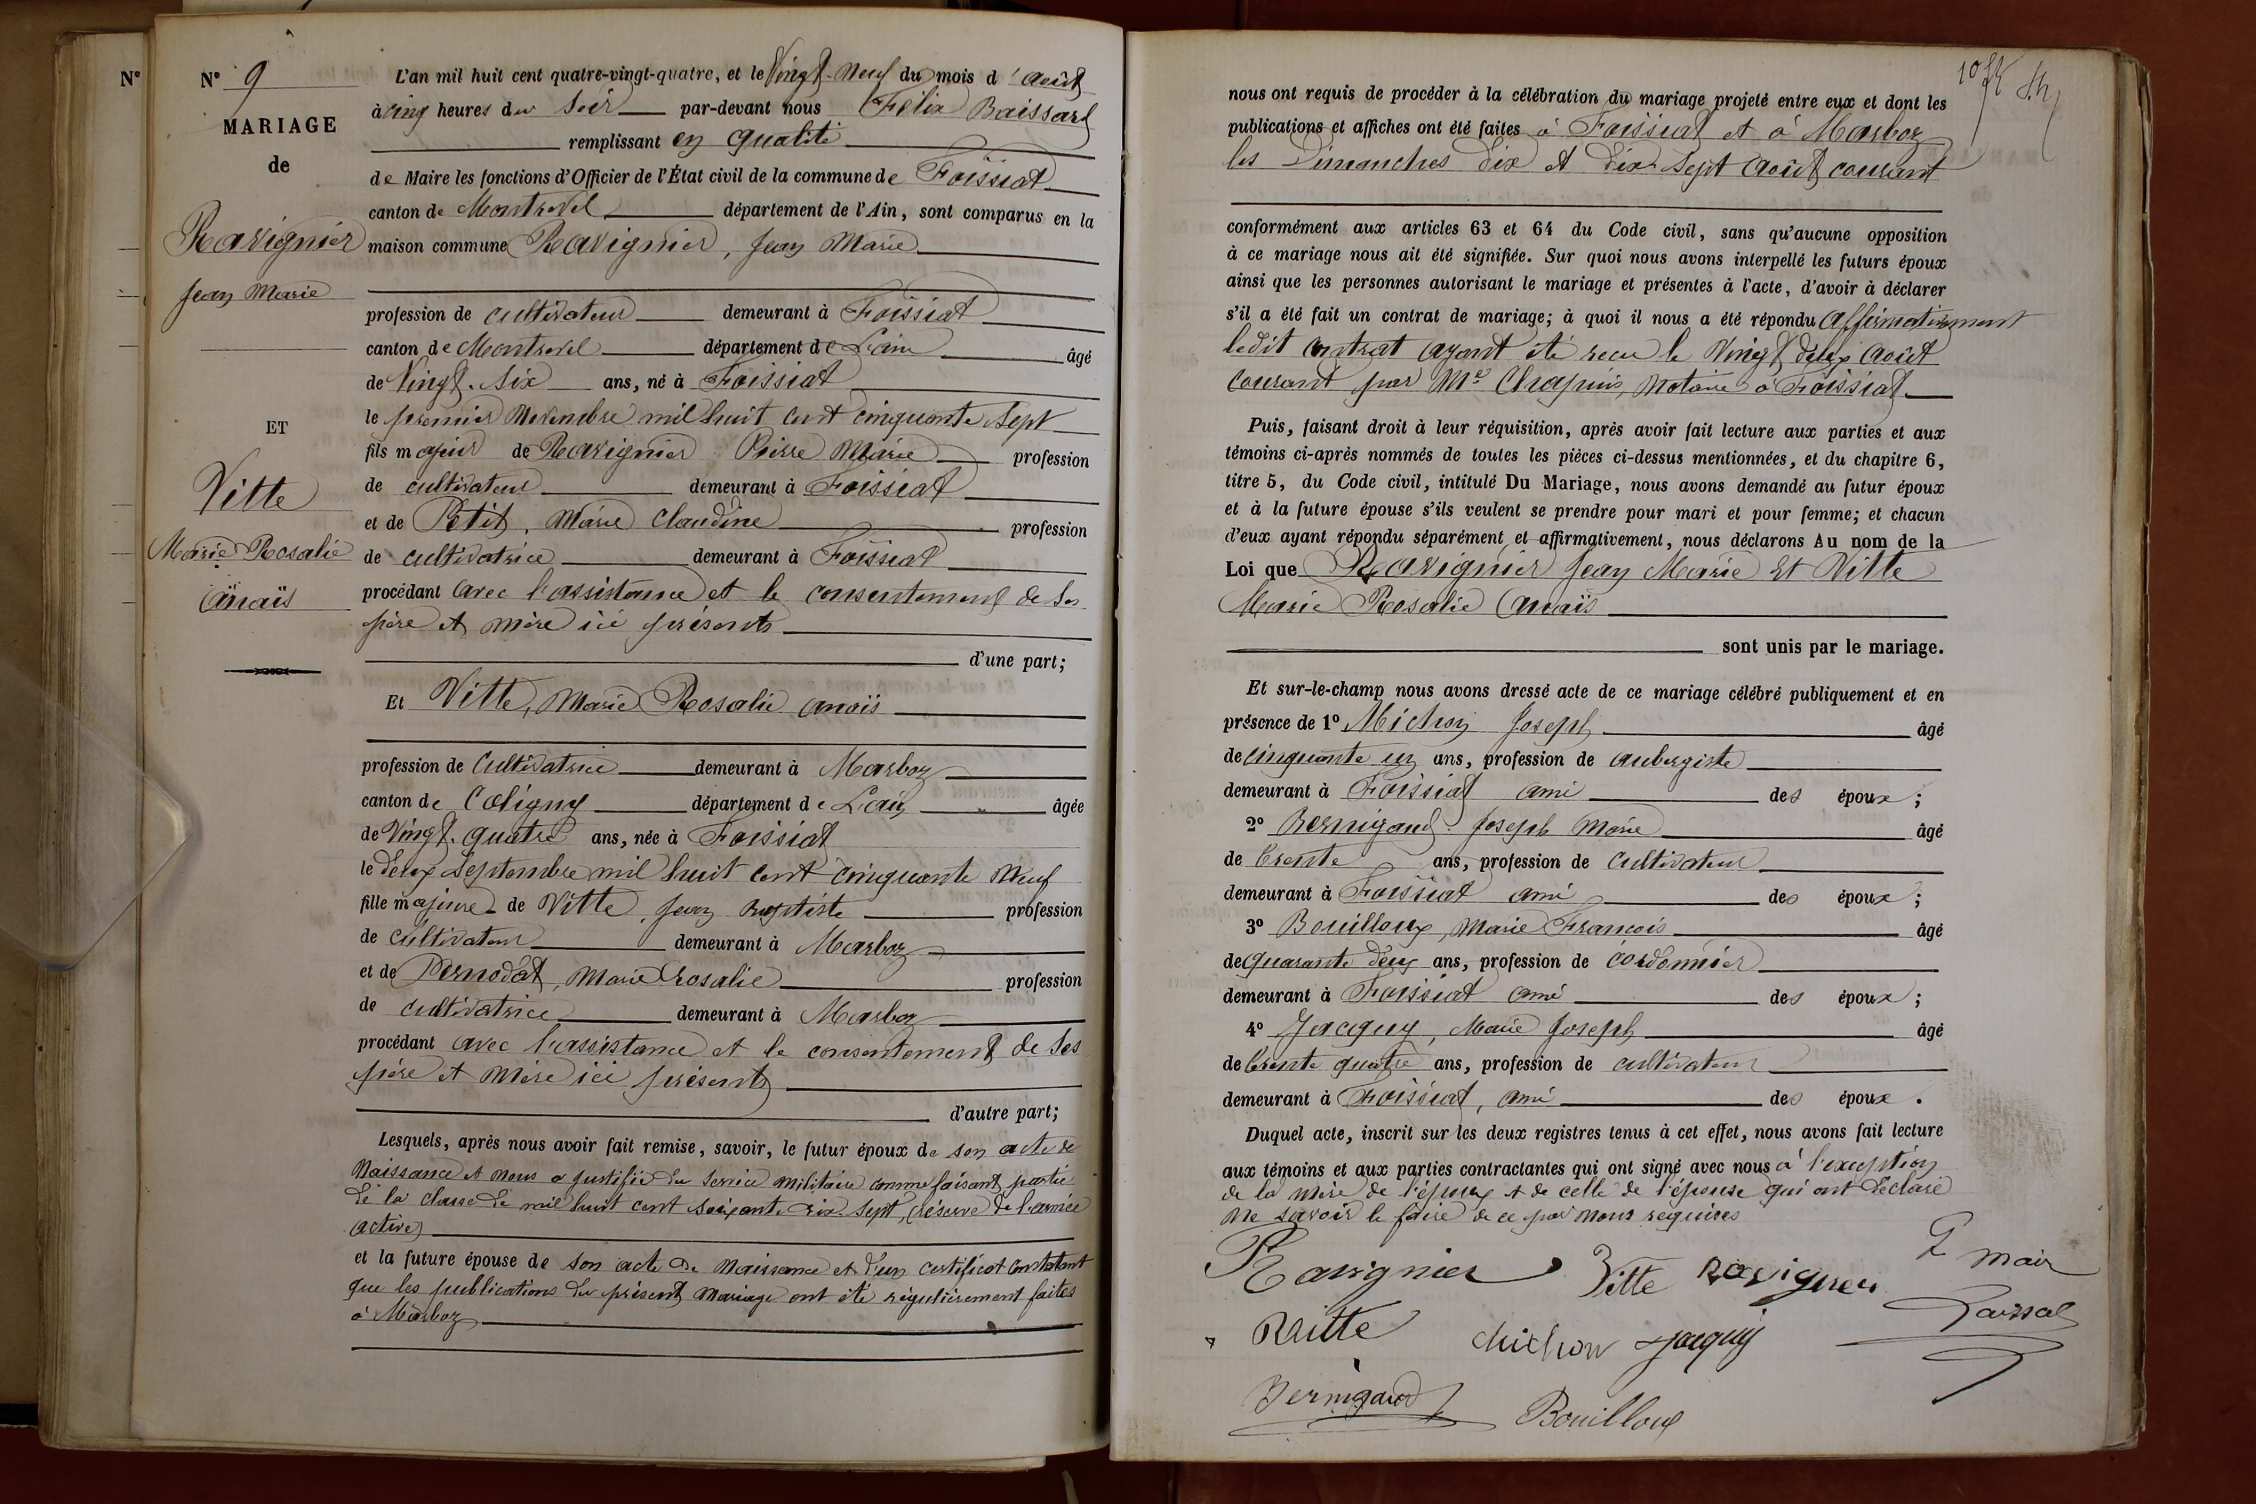 N°
N° 9
MARIAGE
de
Ravignier
Jean Marie
ET
Vitte
Marie Rosalie
Anaïs
L'an mil huit cent quatre-vingt-quatre, et le Vingt-Neuf du mois d'août
à cinq heures du Soir par-devant nous Félix Baissard
remplissant en qualité
de Maire les fonctions d'Officier de l'État civil de la commune de Foissiat
canton de Montrevel département de l'Ain, sont comparus en la
maison commune Ravignier, Jean Marie
profession de cultivateur demeurant à Foissiat
canton de Montrevel département de L'ain âgé
de Vingt-Six ans, né à Foissiat
le premier Novembre mil huit cent cinquante Sept
fils majeur de Ravignier Pierre Marie profession
de cultivateur demeurant à Foissiat
et de Petit, Marie Claudine profession
de cultivatrice demeurant à Foissiat
procédant avec l'assistance et le consentement de Ses
père et mère ici présents
d'une part;
Et Vitte, Marie Rosalie anaïs
profession de Cultivatrice demeurant à Marboz
canton de Coligny département de L'ain âgée
de Vingt-quatre ans, née à Foissiat
le deux Septembre mil huit cent cinquante Neuf
fille majeure de Vitte Jean Baptiste profession
de cultivateur demeurant à Marboz
et de Pernodat, Marie Rosalie profession
de cultivatrice demeurant à Marboz
procédant avec l'assistance et le consentement de Ses
père et Mère ici présents
d'autre part;
Lesquels, après nous avoir fait remise, savoir, le futur époux de son acte de
Naissance et nous a justifié du Service militaire comme faisant partie
de la classe de mil huit cent soixante dix-sept, (réserve de l'armée
active)
et la future épouse de son acte de Naissance et d'un certificat constatant
que les publications du présent Mariage ont été régulièrement faites
à Marboz
nous ont requis de procéder à la célébration du mariage projeté entre eux et dont les
publications et affiches ont été faites à Foissiat et à Marboz
les Dimanches dix et dix-sept Août courant
conformément aux articles 63 et 64 du Code civil, sans qu'aucune opposition
à ce mariage nous ait été signifiée. Sur quoi nous avons interpellé les futurs époux
ainsi que les personnes autorisant le mariage et présentes à l'acte, d'avoir à déclarer
s'il a été fait un contrat de mariage; à quoi il nous a été répondu affirmativement
ledit contrat ayant été reçu le Vingt deux Août
courant par Me Chapuis, Notaire à Foissiat
Puis, faisant droit à leur réquisition, après avoir fait lecture aux parties et aux
témoins ci-après nommés de toutes les pièces ci-dessus mentionnées, et du chapitre 6,
titre 5, du Code civil, intitulé Du Mariage, nous avons demandé au futur époux
et à la future épouse s'ils veulent se prendre pour mari et pour femme; et chacun
d'eux ayant répondu séparément et affirmativement, nous déclarons Au nom de la
Loi que Ravignier Jean Marie Et Vitte
Marie Rosalie Anaïs
sont unis par le mariage.
Et sur-le-champ nous avons dressé acte de ce mariage célébré publiquement et en
présence de 1° Michon Joseph âgé
de cinquante un ans, profession de aubergiste
demeurant à Foissiat ami des époux;
2° Bernigaud Joseph Marie âgé
de trente ans, profession de cultivateur
demeurant à Foissiat ami des époux;
3° Bouilloux, Marie François âgé
de quarante deux ans, profession de cordonnier
demeurant à Foissiat ami des époux;
4° Jacquy, Marie Joseph âgé
de trente quatre ans, profession de cultivateur
demeurant à Foissiat, ami des époux.
Duquel acte, inscrit sur les deux registres tenus à cet effet, nous avons fait lecture
aux témoins et aux parties contractantes qui ont signé avec nous à l'exception
de la mère de l'époux et de celle de l'épouse qui ont déclaré
ne savoir le faire de ce par nous requises
Ravignier Vitte Ravignier Le mair
Vitte Michon Jacquy
Bernigaud Bouilloux